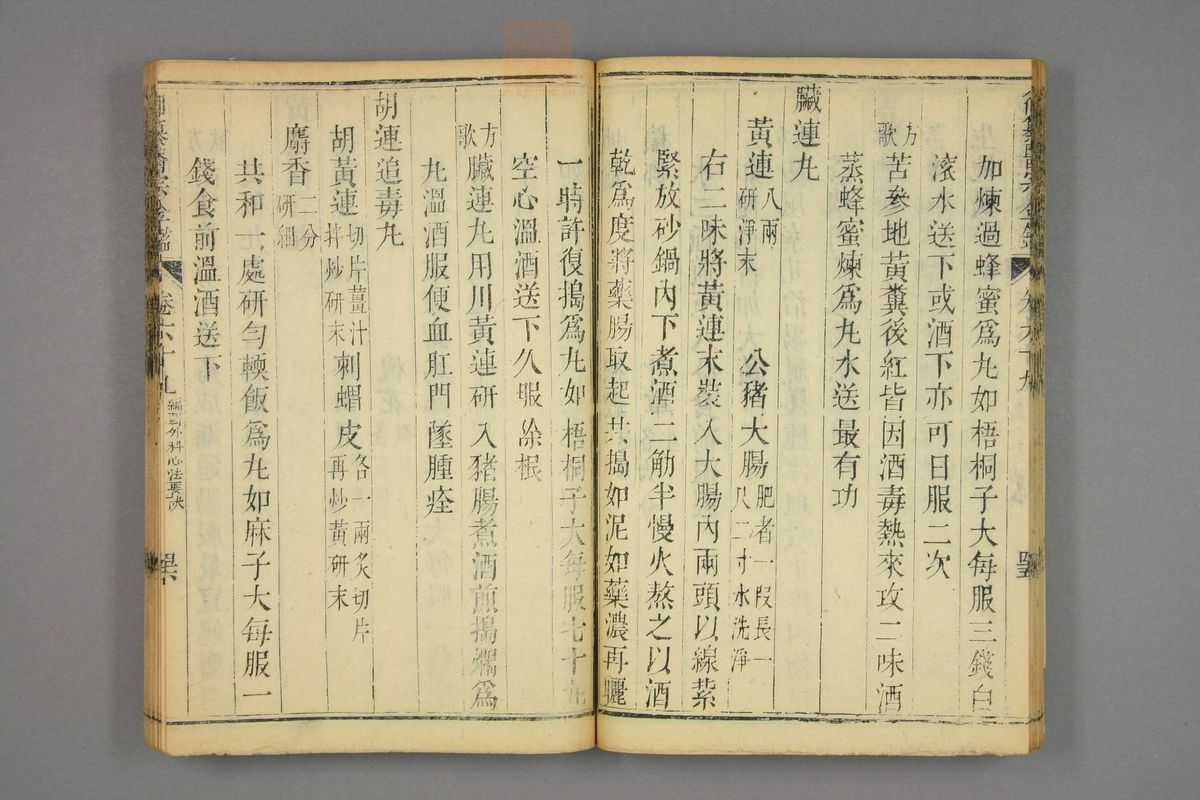 加煉過蜂蜜爲丸如梧桐子大每服三錢白
滾水送下或酒下亦可日服二次
方歌 苦參地黃糞後紅皆因酒毒熱來攻二味酒
蒸蜂蜜煉爲丸水送最有功
臟連丸
黃連 八兩研淨末 公豬大腸 肥者一段長一尺二寸水洗淨
右二味將黃連末裝入大腸內兩頭以線紮
緊放砂鍋內下煮酒二觔半慢火熬之以酒
乾爲度將藥腸取起共搗如泥如藥濃再曬
一時許復搗爲丸如梧桐子大每服七十丸
空心溫酒送下久服除根
方歌 臟連丸用川黃連研入豬腸煮酒煎搗爛爲
丸溫酒服便血肛門墜腫痊
胡連追毒丸
胡黃連 切片薑汁拌炒研末 刺蝟皮 各一兩炙切片再炒黃研末
麝香 二分研細
共和一處研勻輭飯爲丸如麻子大每服一
錢食前溫酒送下
卷六十九 編輯外科心法要訣